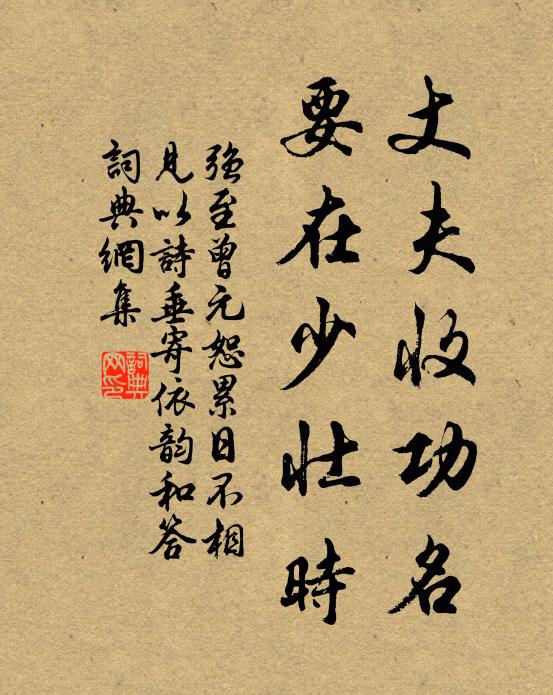 丈夫收功名
要在少壮時
強至曾元恕累日不相
見以詩垂寄依韵和答
詞典網集
詞典网印